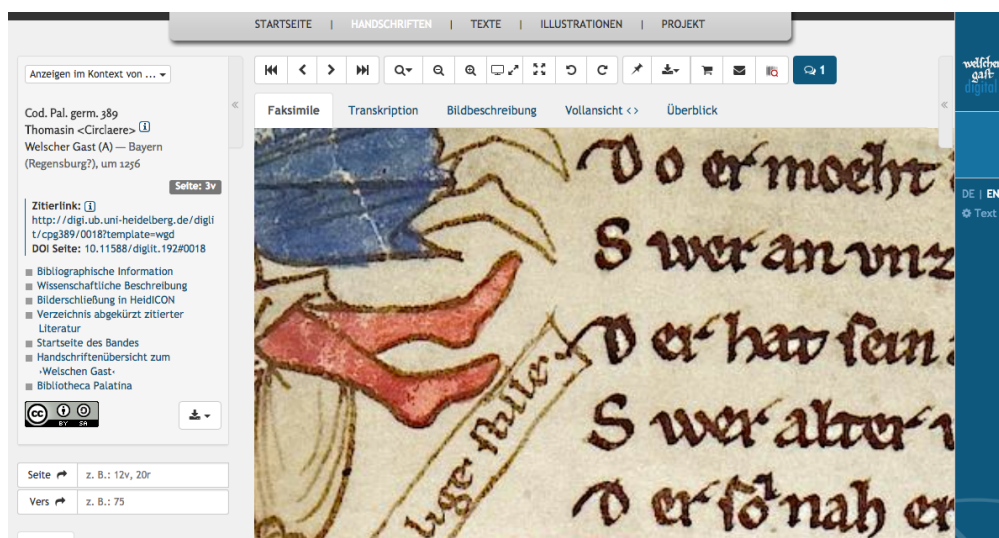 STARTSEITE | HANDSCHRIFTEN | TEXTE | ILLUSTRATIONEN | PROJEKT
Anzeigen im Kontext von ...
Cod. Pal. germ. 389
Thomasin <Circlaere>
Welscher Gast (A) — Bayern
(Regensburg?), um 1256
Seite: 3v
Zitierlink:
http://digi.ub.uni-heidelberg.de/digli
t/cpg389/0018?template=wgd
DOI Seite: 10.11588/diglit.192#0018
Bibliographische Information
Wissenschaftliche Beschreibung
Bilderschließung in HeidICON
Verzeichnis abgekürzt zitierter
Literatur
Startseite des Bandes
Handschriftenübersicht zum
›Welschen Gast‹
Bibliotheca Palatina
cc BY SA
Seite z. B.: 12v, 20r
Vers z. B.: 75
1
Faksimile Transkription Bildbeschreibung Vollansicht <> Überblick
D o er moeht
S wer an vnz
D er hat sein
S wer alter
D er nah er
lige stille
welscher
gast
digital
DE | EN
Text